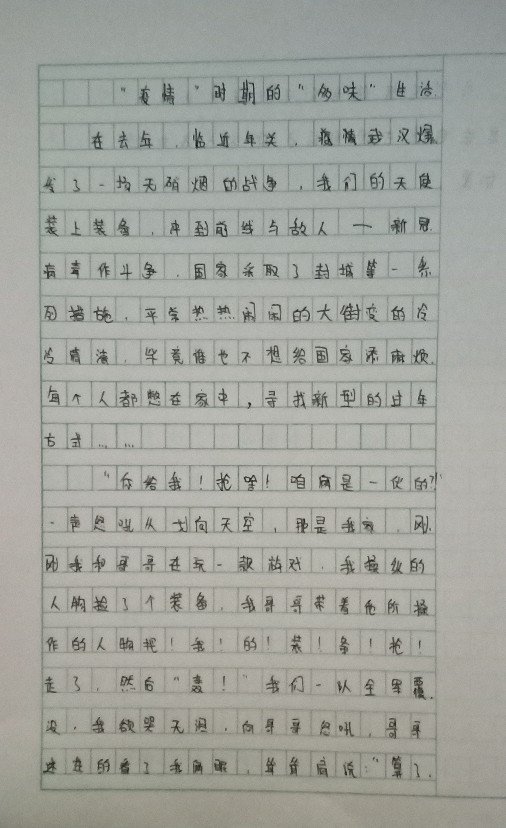 “疫情”时期的“多味”生活
在去年，临近年关，疫情武汉爆
发了一场无硝烟的战争，我们的天使
装上装备，冲到前线与敌人——新冠
病毒作斗争，国家采取了封城等一系
列措施，平常热热闹闹的大街变的冷
冷清清，毕竟谁也不想给国家添麻烦，
每个人都憋在家中，寻找新型的过年
方式……
“你给我！抢啥！咱俩是一伙的?!”
一声怒吼从划向天空，那是我家，刚
刚我和哥哥在玩一款游戏，我操纵的
人物捡了个装备，我哥哥带着他所操
作的人物把！我！的！装！备！抢！
走了，然后“轰！”我们一队全军覆
没，我欲哭无泪，向哥哥怒吼，哥哥
的看了我俩眼，耸耸肩说：“算了，